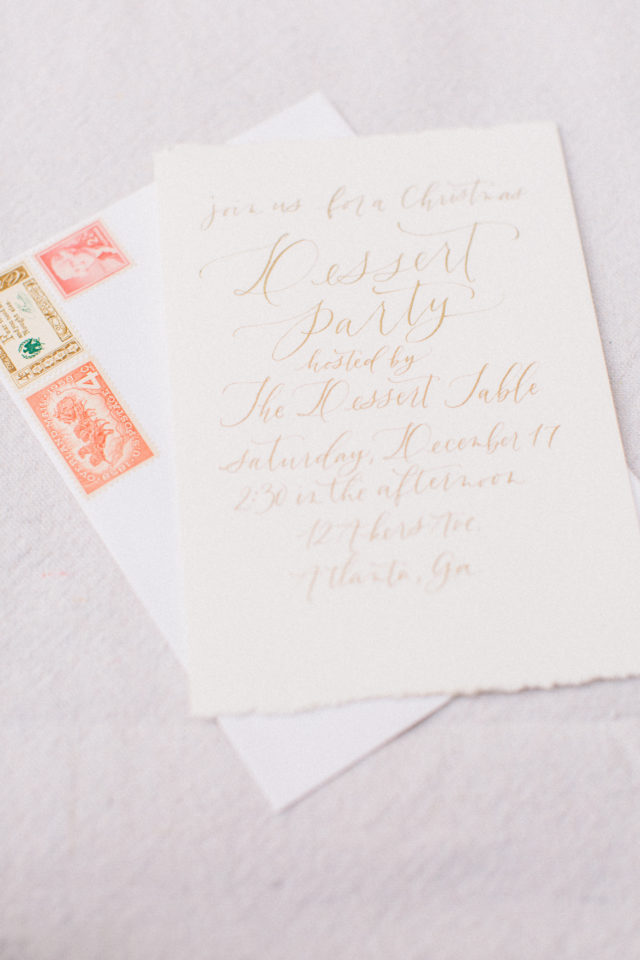 join us for a Christmas
Dessert
party
hosted by
The Dessert Table
saturday, December 17
2:30 in the afternoon
12 Ave
Atlanta, Ga
2¢
4¢